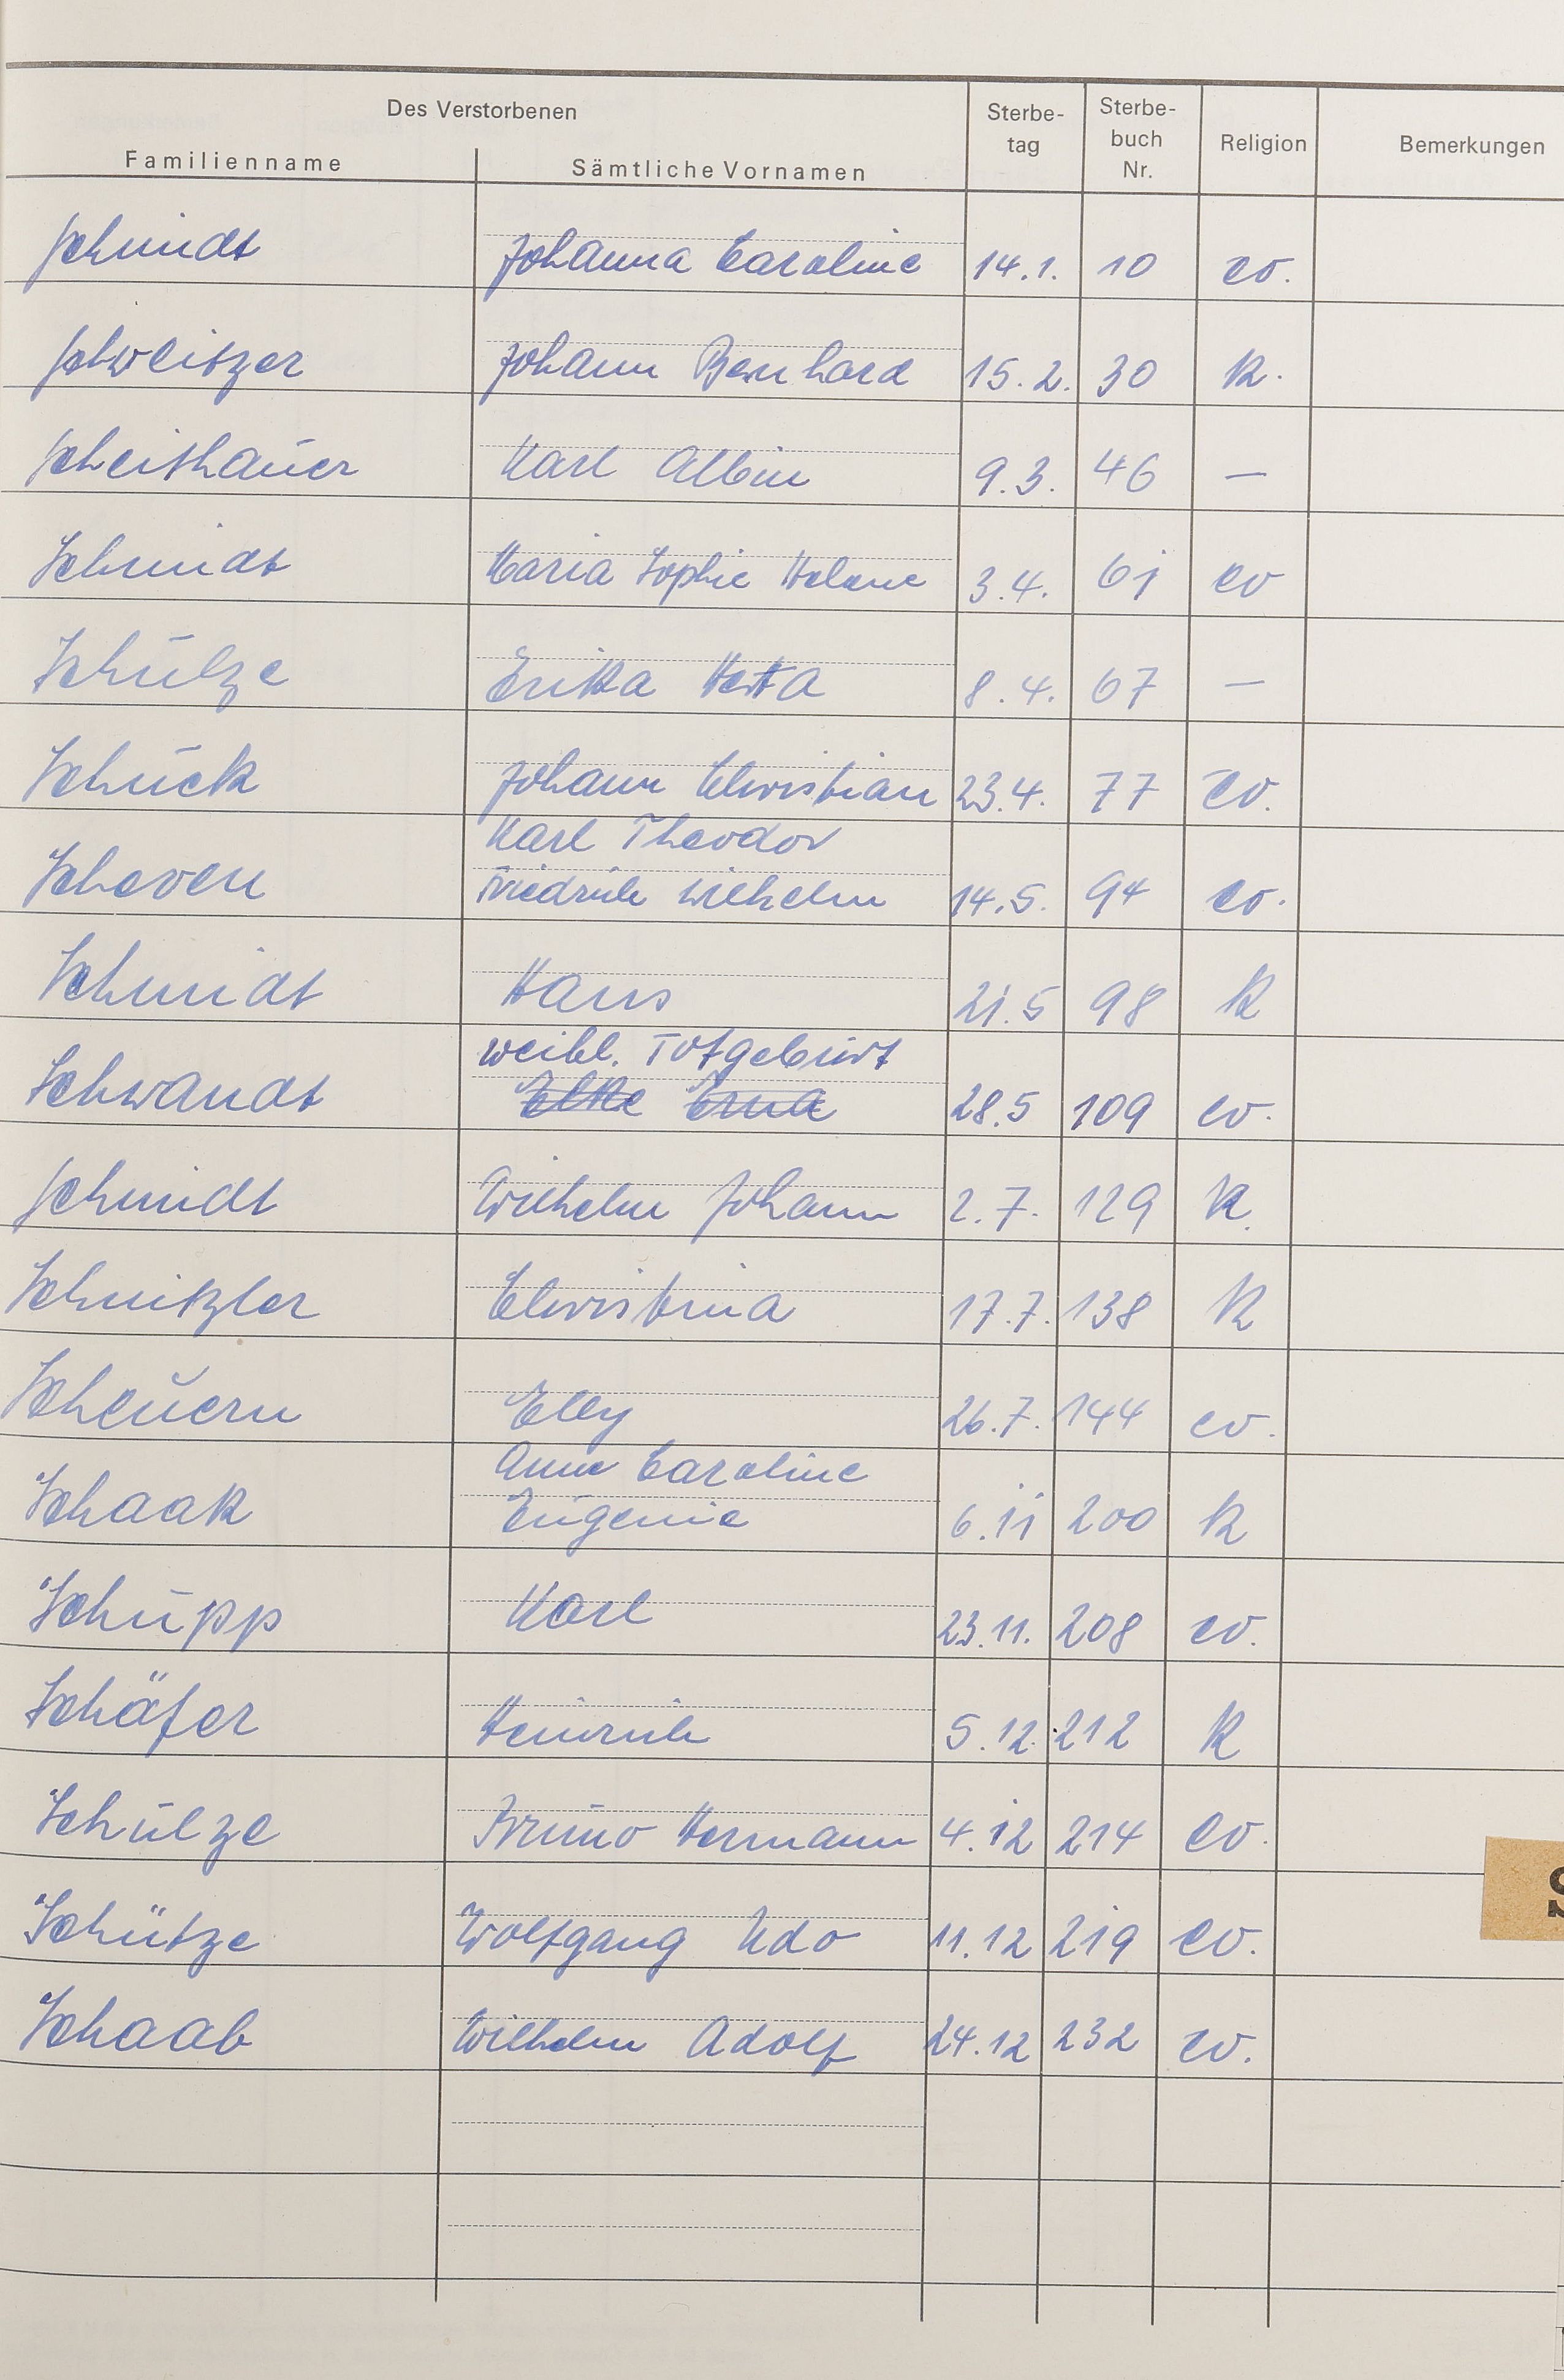 Des Verstorbenen
Familienname Sämtliche Vornamen Sterbe-tag Sterbe-buch Nr. Religion Bemerkungen
Schmidt Johanna Caroline 14.1. 10 ev.
Schweitzer Johann Bernhard 15.2. 30 k.
Scheithauer Karl Albin 9.3. 46 —
Schmidt Maria Sophie Helene 3.4. 61 ev
Schulze Erika Herta 8.4. 67 —
Schuck Johann Christian 23.4. 77 ev.
Karl Theodor
Scheven Friedrich Wilhelm 14.5. 94 ev.
Schmidt Hans 21.5 98 k
weibl. Totgeburt
Schwandt Elke Erna 28.5 109 ev.
Schmidt Wilhelm Johann 2.7. 129 k.
Schnitzler Christina 17.7. 138 k
Scheuern Elly 26.7. 144 ev.
Anna Caroline
Schaak Eugenie 6.11 200 k
Schupp Karl 23.11. 208 ev.
Schäfer Heinrich 5.12. 212 k
Schulze Bruno Hermann 4.12 214 ev.
Schütze Wolfgang Udo 11.12 219 ev.
S
Schaab Wilhelm Adolf 24.12 232 ev.